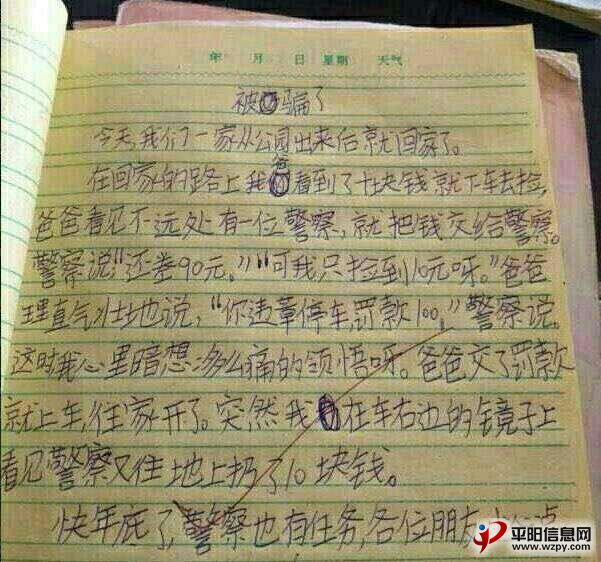 年 月 日 星期 天气
被骗了
今天,我们一家从公园出来后就回家了。
在回家的路上我爸看到了十块钱就下车去捡,
爸爸看见不远处有一位警察,就把钱交给警察。
警察说"还差90元。""可我只捡到10元呀。"爸爸
理直气壮地说,"你违章停车,罚款100。"警察说。
这时我心里暗想:多么痛的领悟呀。爸爸交了罚款
就上车,往家开了。突然我在车右边的镜子上
看见警察又往地上扔了10块钱。
快年底了,警察也有任务,各位朋友
平阳信息网
www.wzpy.com